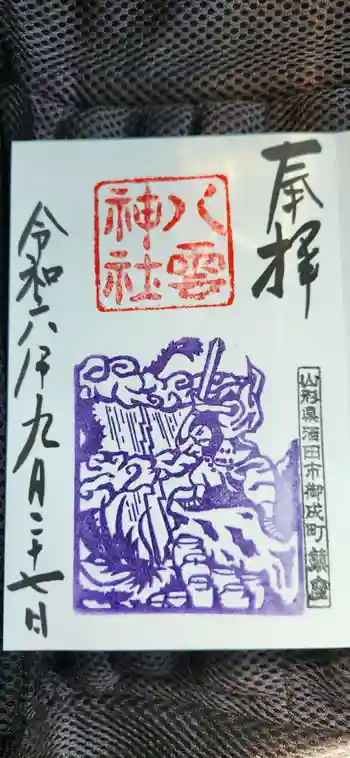 奉拝
八雲
神社
山形県酒田市御成町鎮座
令和六年九月二十七日